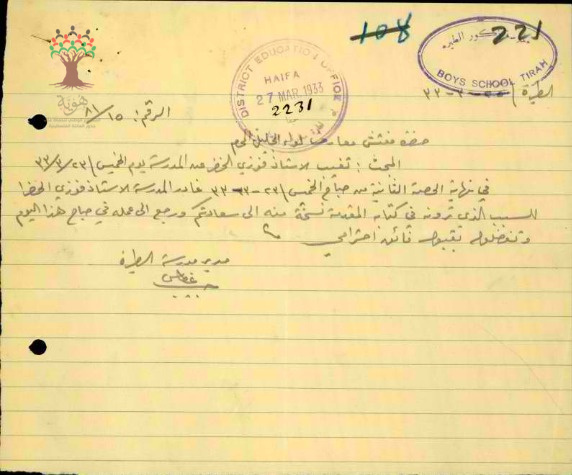 108
221
BOYS SCHOOL TIRAH
DISTRICT EDUCATION OFFICE
HAIFA
27 MAR. 1933
2231
هوية
الطيرة / ٢٥-٣-٣٣
الرقم: ٨١/١٥
حضرة مفتش معارف لواء الجليل المحترم
المبحث: تغيب الاستاذ فوزي الخضر عن المدرسة يوم الخميس ٢٣/٣/٣٣
في نهاية الحصة الثانية من صباح الخميس ٢٣-٣-٣٣ غادر المدرسة الاستاذ فوزي الخضرا
للسبب الذي ترونه في كتابه المقدمة نسخة منه الى سعادتكم ورجع الى عمله في صباح هذا اليوم
وتفضلوا بقبول فائق احترامي
مدير مدرسة الطيرة